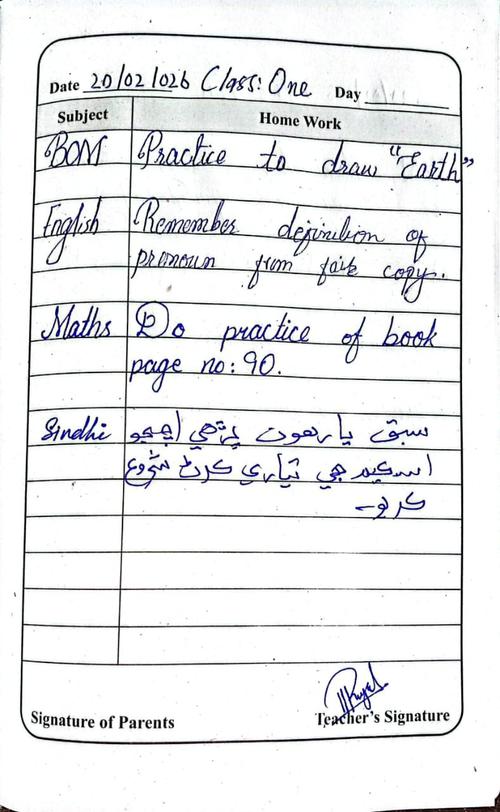 Date 20/02/026 Class: One Day
Subject Home Work
BOM Practice to draw "Earth"
English Remember definition of
pronoun from fair copy.
Maths Do practice of book
page no: 90.
Sindhi سبق يارهون پڙهي اچجو
اسڪيم جي تياري ڪرڻ شروع
ڪريو۔
Signature of Parents Teacher's Signature